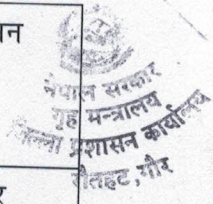 न
नेपाल सरकार
गृह मन्त्रालय
जिल्ला प्रशासन कार्यालय
रौतहट, गौर
र